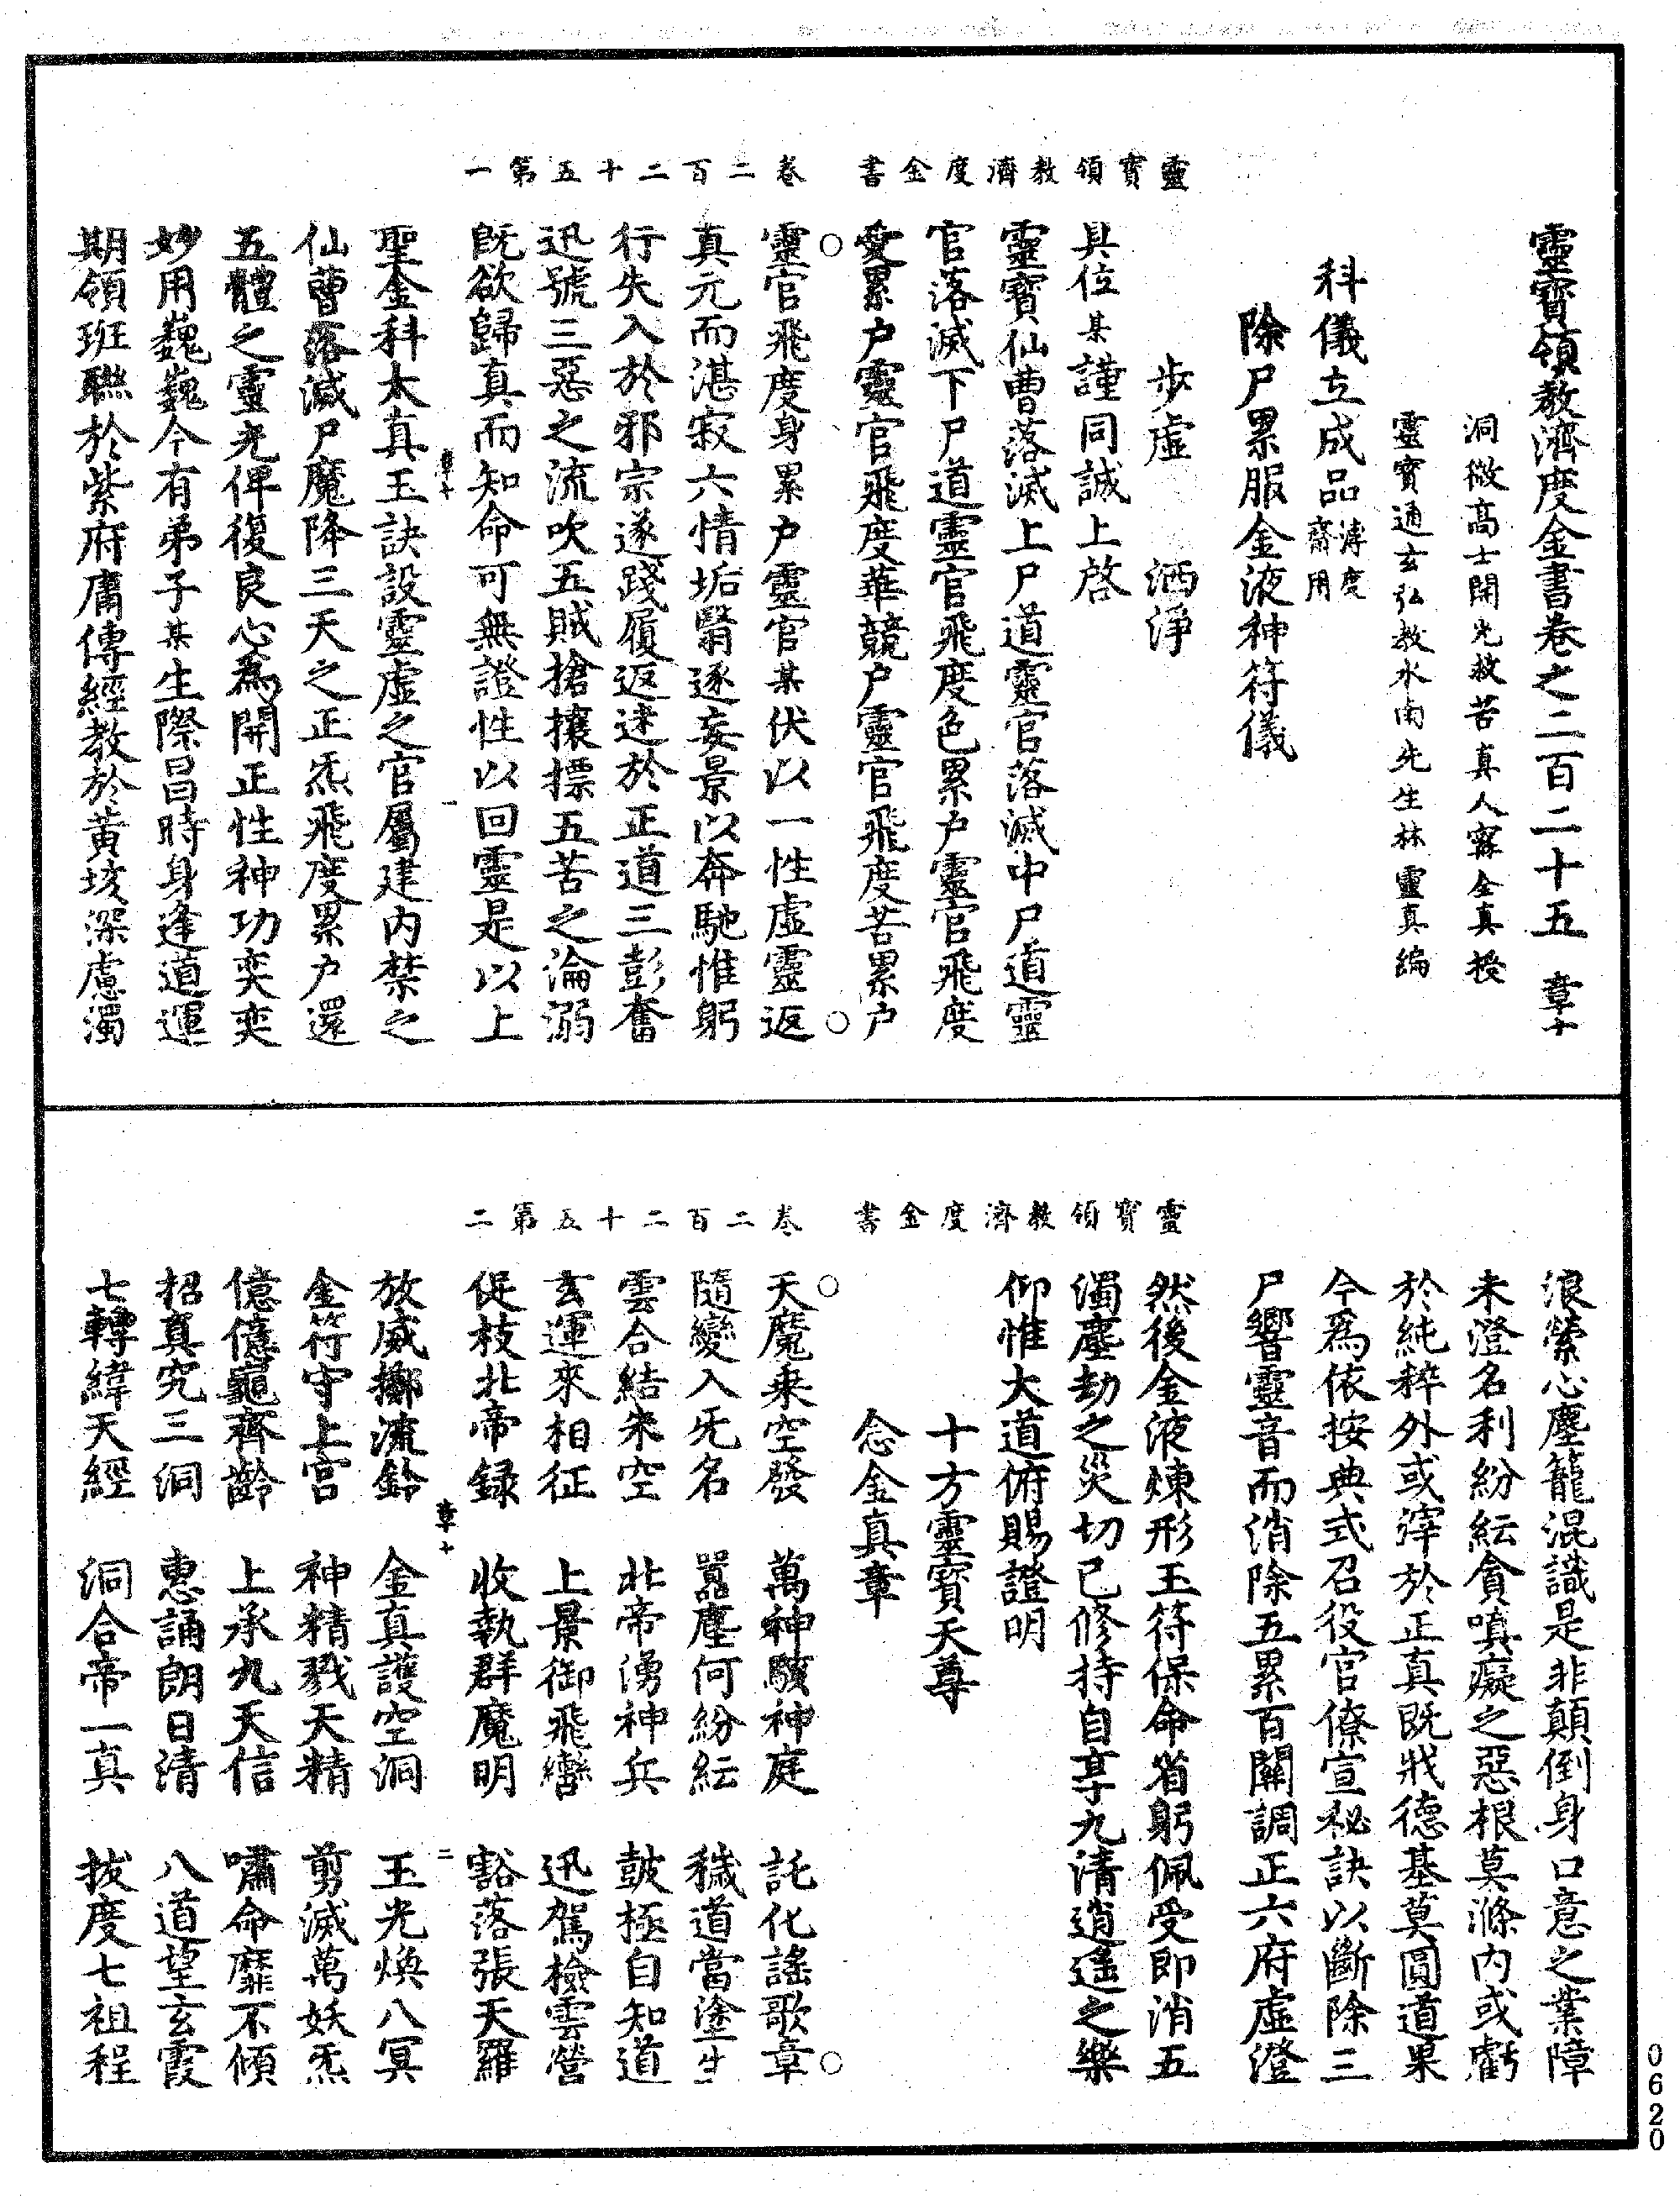 靈寶領教濟度金書卷之二百二十五　章十
洞微高士開光救苦真人甯全真授
靈寶通玄弘教水南先生林靈真編
科儀立成品溥度齋用
除尸累服金液神符儀
步虛　洒淨
具位某謹同誠上啓
靈寶仙曹落滅上尸道靈官落滅中尸道靈
官落滅下尸道靈官飛度色累户靈官飛度
愛累户靈官飛度華競户靈官飛度苦累户
靈寶領教濟度金書　卷二百二十五第一
靈官飛度身累户靈官某伏以一性虛靈返
真元而湛寂六情垢翳逐妄景以奔馳惟躬
行失入於邪宗遂踐履返逮於正道三彭奮
迅號三惡之流吹五賊搶攘摽五苦之淪溺
旣欲歸真而知命可無證性以回靈是以上
章十　一
聖金科太真玉訣設靈虛之官屬建内禁之
仙曹落滅尸魔降三天之正炁飛度累户還
五體之靈光俾復良心爲開正性神功奕奕
妙用巍巍今有弟子某生際昌時身逢道運
期領班聮於紫府庸傳經教於黄垓深慮濁
浪縈心塵籠混識是非顛倒身口意之業障
未澄名利紛紜貪嗔癡之惡根莫滌内或虧
於純粹外或滓於正真既戕德基莫圓道果
今爲依按典式召役官僚宣祕訣以斷除三
尸響靈音而消除五累百關調正六府虛澄
然後金液煉形玉符保命省躬佩受即消五
濁塵劫之災切已修持自享九清逍遥之樂
仰惟大道俯賜證明
十方靈寶天尊
念金真章
靈寶領教濟度金書　卷二百二十五第二
天魔乗空發　萬神駭神庭　託化謡歌章
隨變入旡名　嚚塵何紛紜　穢道當塗生
雲合結朱空　北帝湧神兵　皷極自知道
玄運來相征　上景御飛轡　迅駕檢雲營
促枝北帝録　收執群魔明　豁落張天羅
章十　二
放威擲流鈴　金真護空洞　玉光煥八冥
金符守上宫　神精戮天精　剪滅萬妖炁
億億龜齊齡　上承九天信　嘯命靡不傾
招真究三洞　惠誦朗日清　八道望玄霞
七轉緯天經　洞合帝一真　拔度七祖程
0620